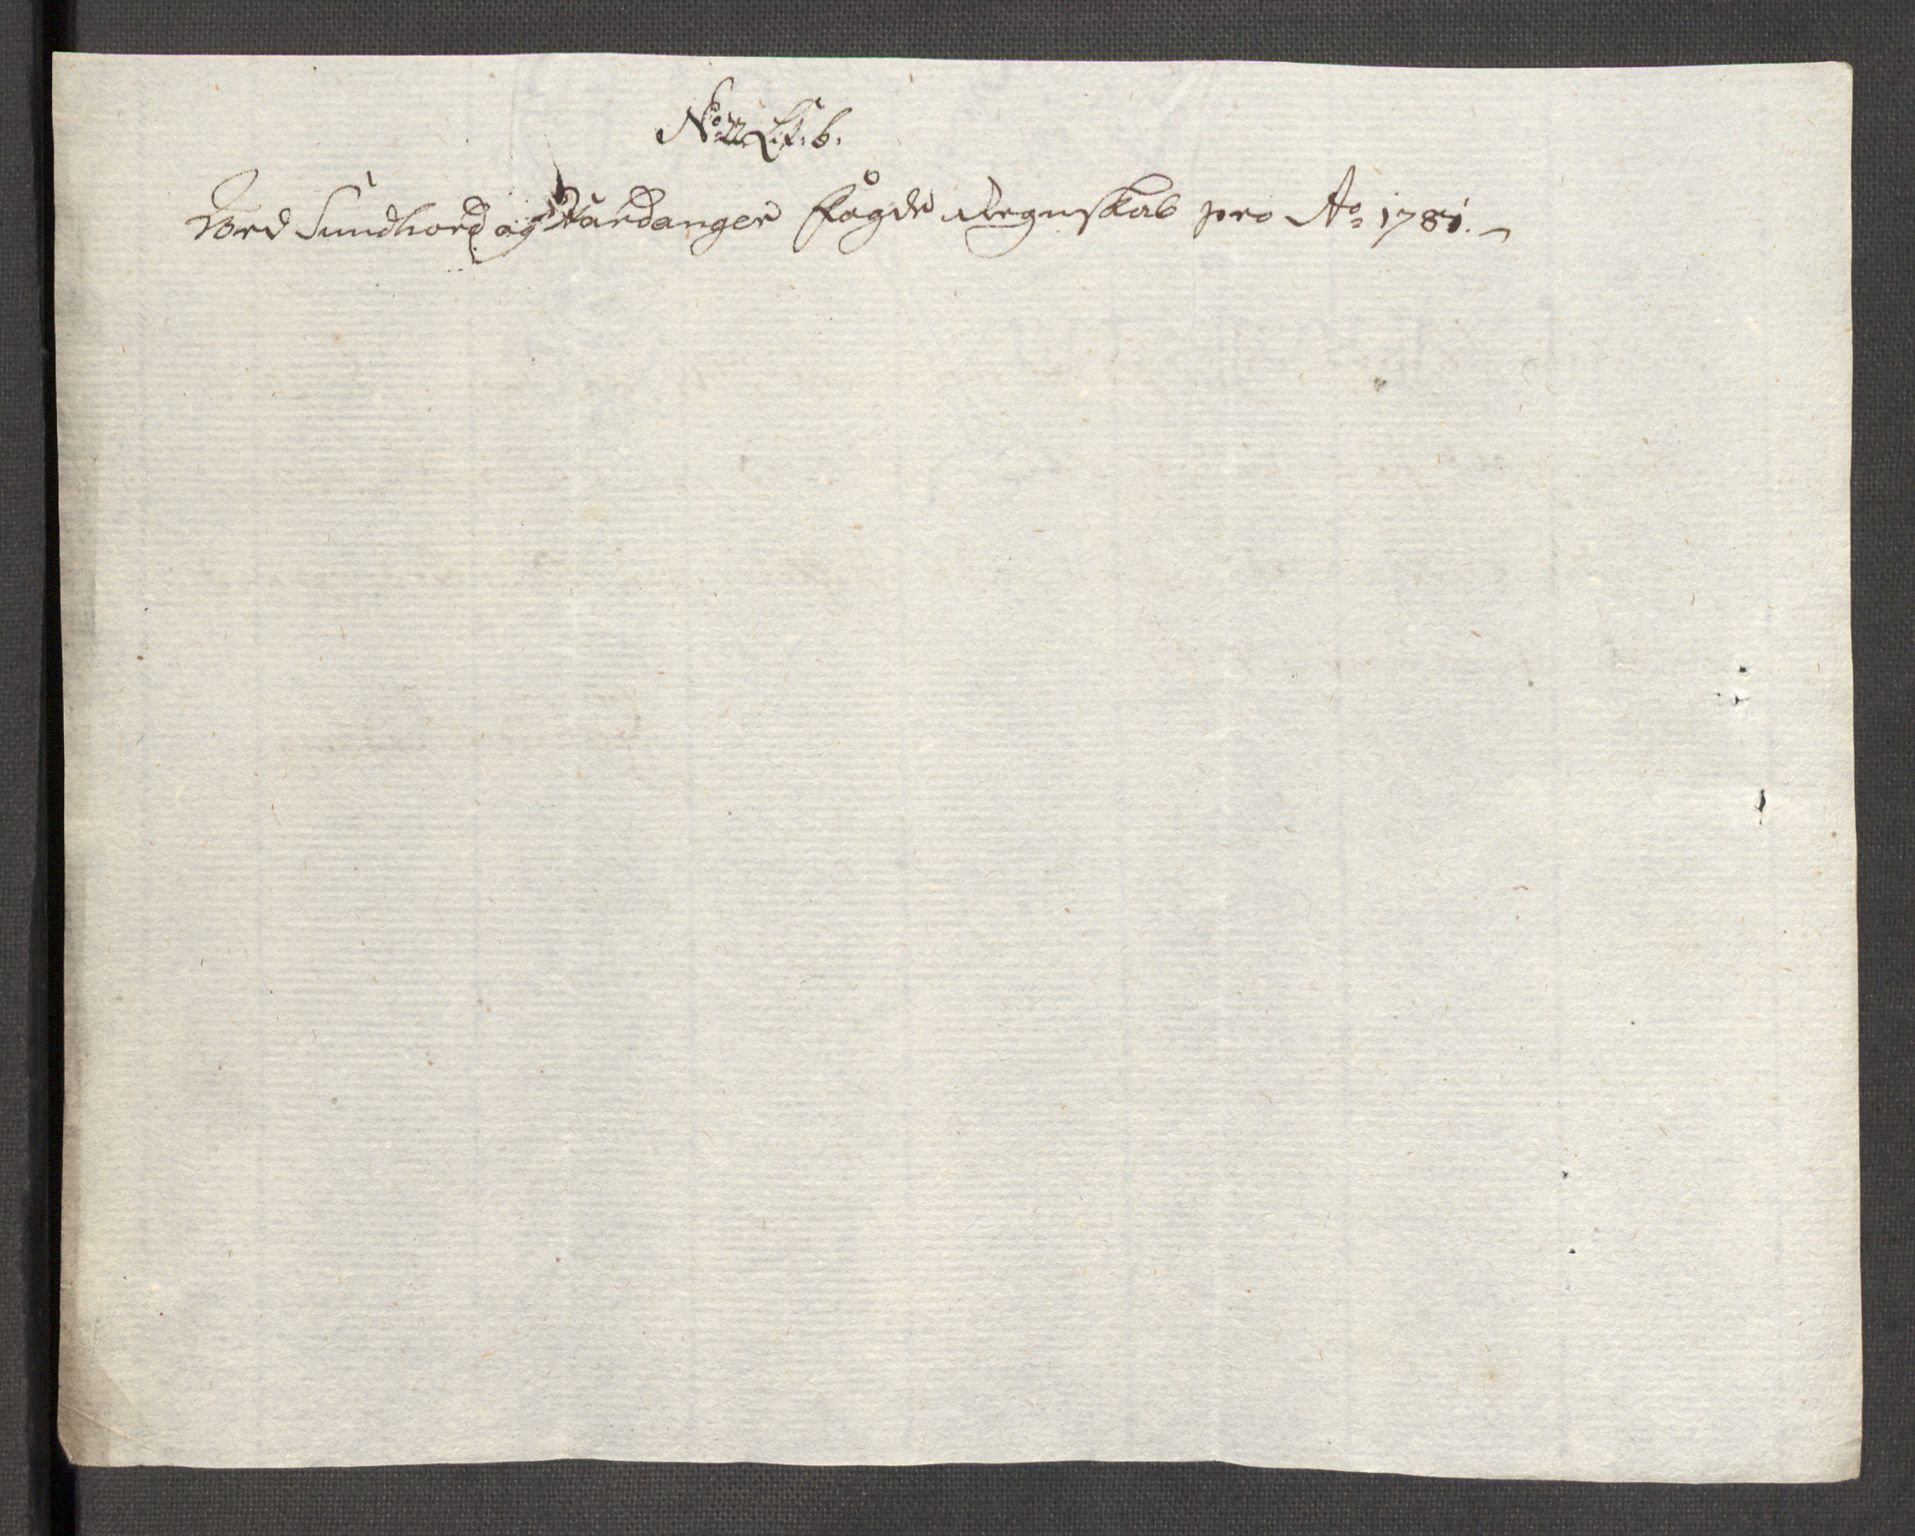 No 22 Lt. b.
Ved Sundhord og Hardanger Fogde Regnskab pro Ao 1781.